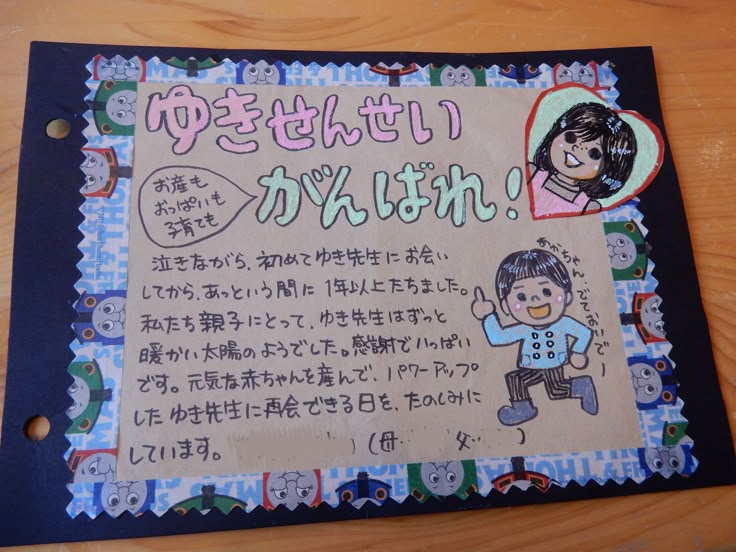 ゆきせんせい
がんばれ!
お産も
おっぱいも
子育ても
泣きながら、初めてゆき先生にお会い
してから、あっという間に1年以上たちました。
私たち親子にとって、ゆき先生はずっと
暖かい太陽のようでした。感謝でいっぱい
です。元気な赤ちゃんを産んで、パワーアップ
したゆき先生に再会できる日を、たのしみに
しています。
(母 父 )
あかちゃん、でておいでー